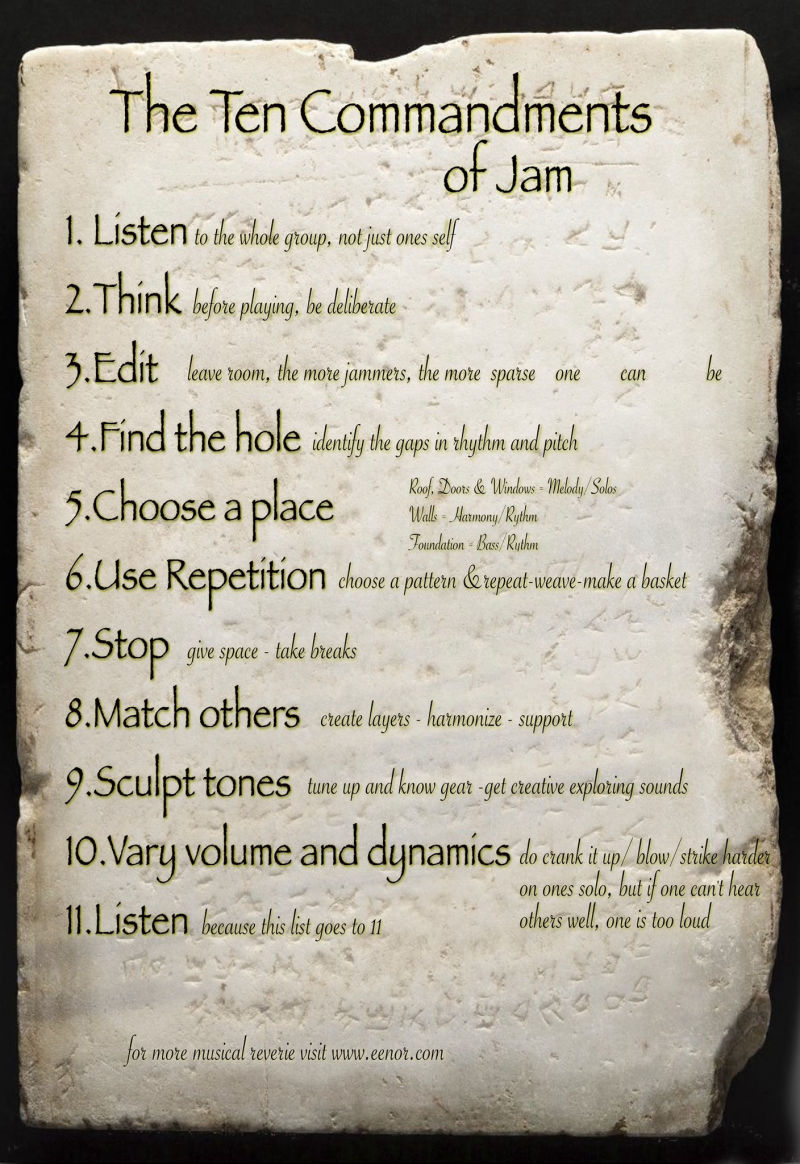 The Ten Commandments
of Jam
1. Listen to the whole group, not just ones self
2.Think before playing, be deliberate
3.Edit leave room, the more jammers, the more sparse one can be
4.Find the hole identify the gaps in rhythm and pitch
5.Choose a place
Roof, Doors & Windows = Melody/Solos
Walls = Harmony/Rythm
Foundation = Bass/Rythm
6.Use Repetition choose a pattern & repeat-weave-make a basket
7.Stop give space - take breaks
8.Match others create layers - harmonize - support
9.Sculpt tones tune up and know gear -get creative exploring sounds
10.Vary volume and dynamics do crank it up/ blow/strike harder
on ones solo, but if one can't hear
others well, one is too loud
11.Listen because this list goes to 11
for more musical reverie visit www.eenor.com